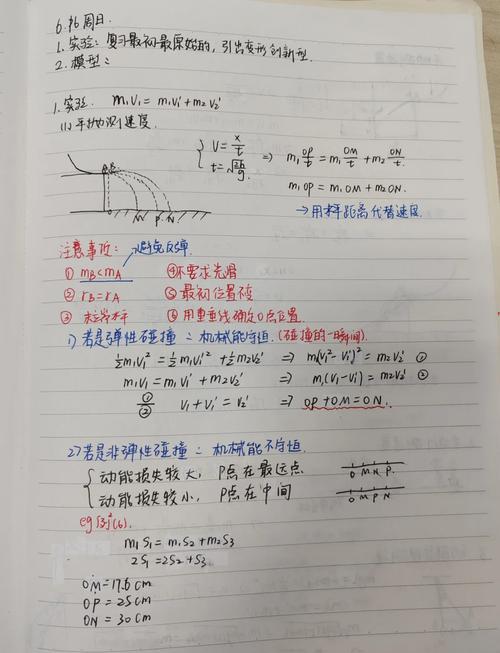 6.16 周日.
1. 实验: 复习最初最原始的, 引出变形创新型.
2. 模型:
1. 实验. m₁v₁ = m₁v₁' + m₂v₂'
(1) 平抛测速度.
{ v = x/t
t = √(2h/g)
⇒ m₁ OP/t = m₁ OM/t + m₂ ON/t.
m₁OP = m₁OM + m₂ON.
→用水平距离代替速度.
A B
M P N
注意事项: →避免反弹.
① mB<mA ④不要求光滑
② rB=rA ⑤最初位置不变
③ 末端水平 ⑥用重垂线确定O点位置.
1) 若是弹性碰撞: 机械能守恒. (碰撞的一瞬间)
½m₁v₁² = ½m₁v₁'² + ½m₂v₂' ⇒ m₁(v₁² - v₁')² = m₂v₂' ①
m₁v₁ = m₁v₁' + m₂v₂' ⇒ m₁(v₁-v₁') = m₂v₂' ②
①/② v₁+v₁' = v₂' ⇒ OP+OM=ON.
2) 若是非弹性碰撞: 机械能不守恒.
{ 动能损失较大, P点在最远点. O M N P.
动能损失较小, P点在中间 O M P N
m₁S₁ = m₁S₂ + m₂S₃
2S₁ = 2S₂ + S₃
OM = 17.6cm
OP = 25cm
ON = 30cm